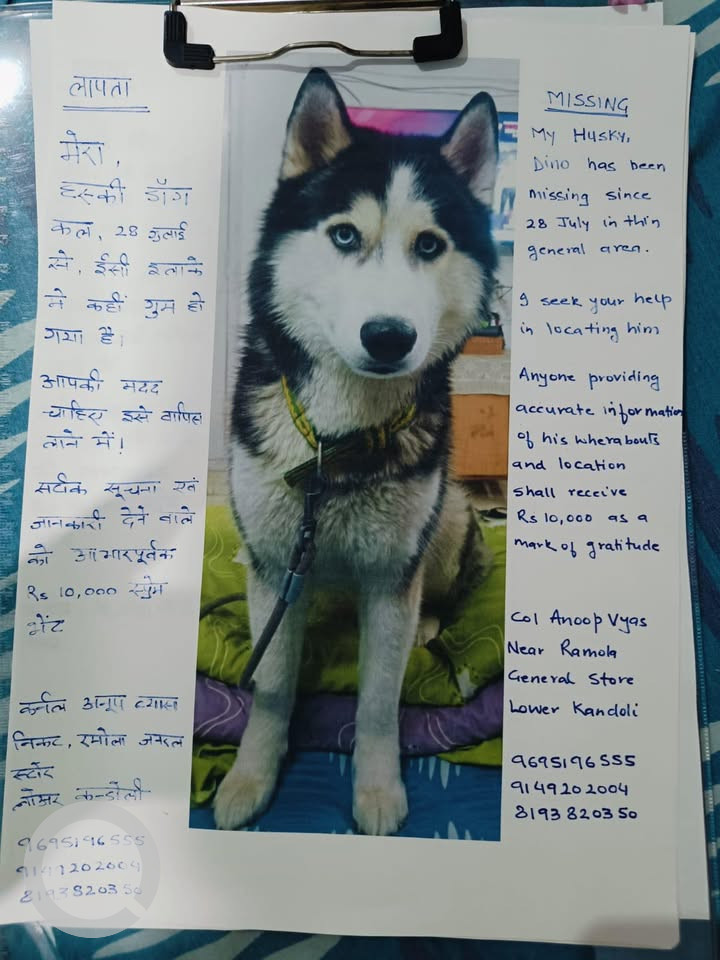 लापता
मेरा,
हस्की डॉग
कल, 28 जुलाई
से, ईसी इलाके
मे कहीं गुम हो
गया है।
आपकी मदद
चाहिए इसे वापिस
लाने में!
सटीक सूचना एवं
जानकारी देने वाले
को आभारपूर्वक
Rs 10,000 सप्रेम
भेंट
कर्नल अनूप व्यास
निकट, रमोला जनरल
स्टोर
लोअर कन्डोली
9695196555
9149202004
8193820350
MISSING
My Husky,
Dino has been
missing since
28 July in this
general area.
I seek your help
in locating him
Anyone providing
accurate information
of his wherabouts
and location
shall receive
Rs 10,000 as a
mark of gratitude
Col Anoop Vyas
Near Ramola
General Store
Lower Kandoli
9695196555
9149202004
8193820350